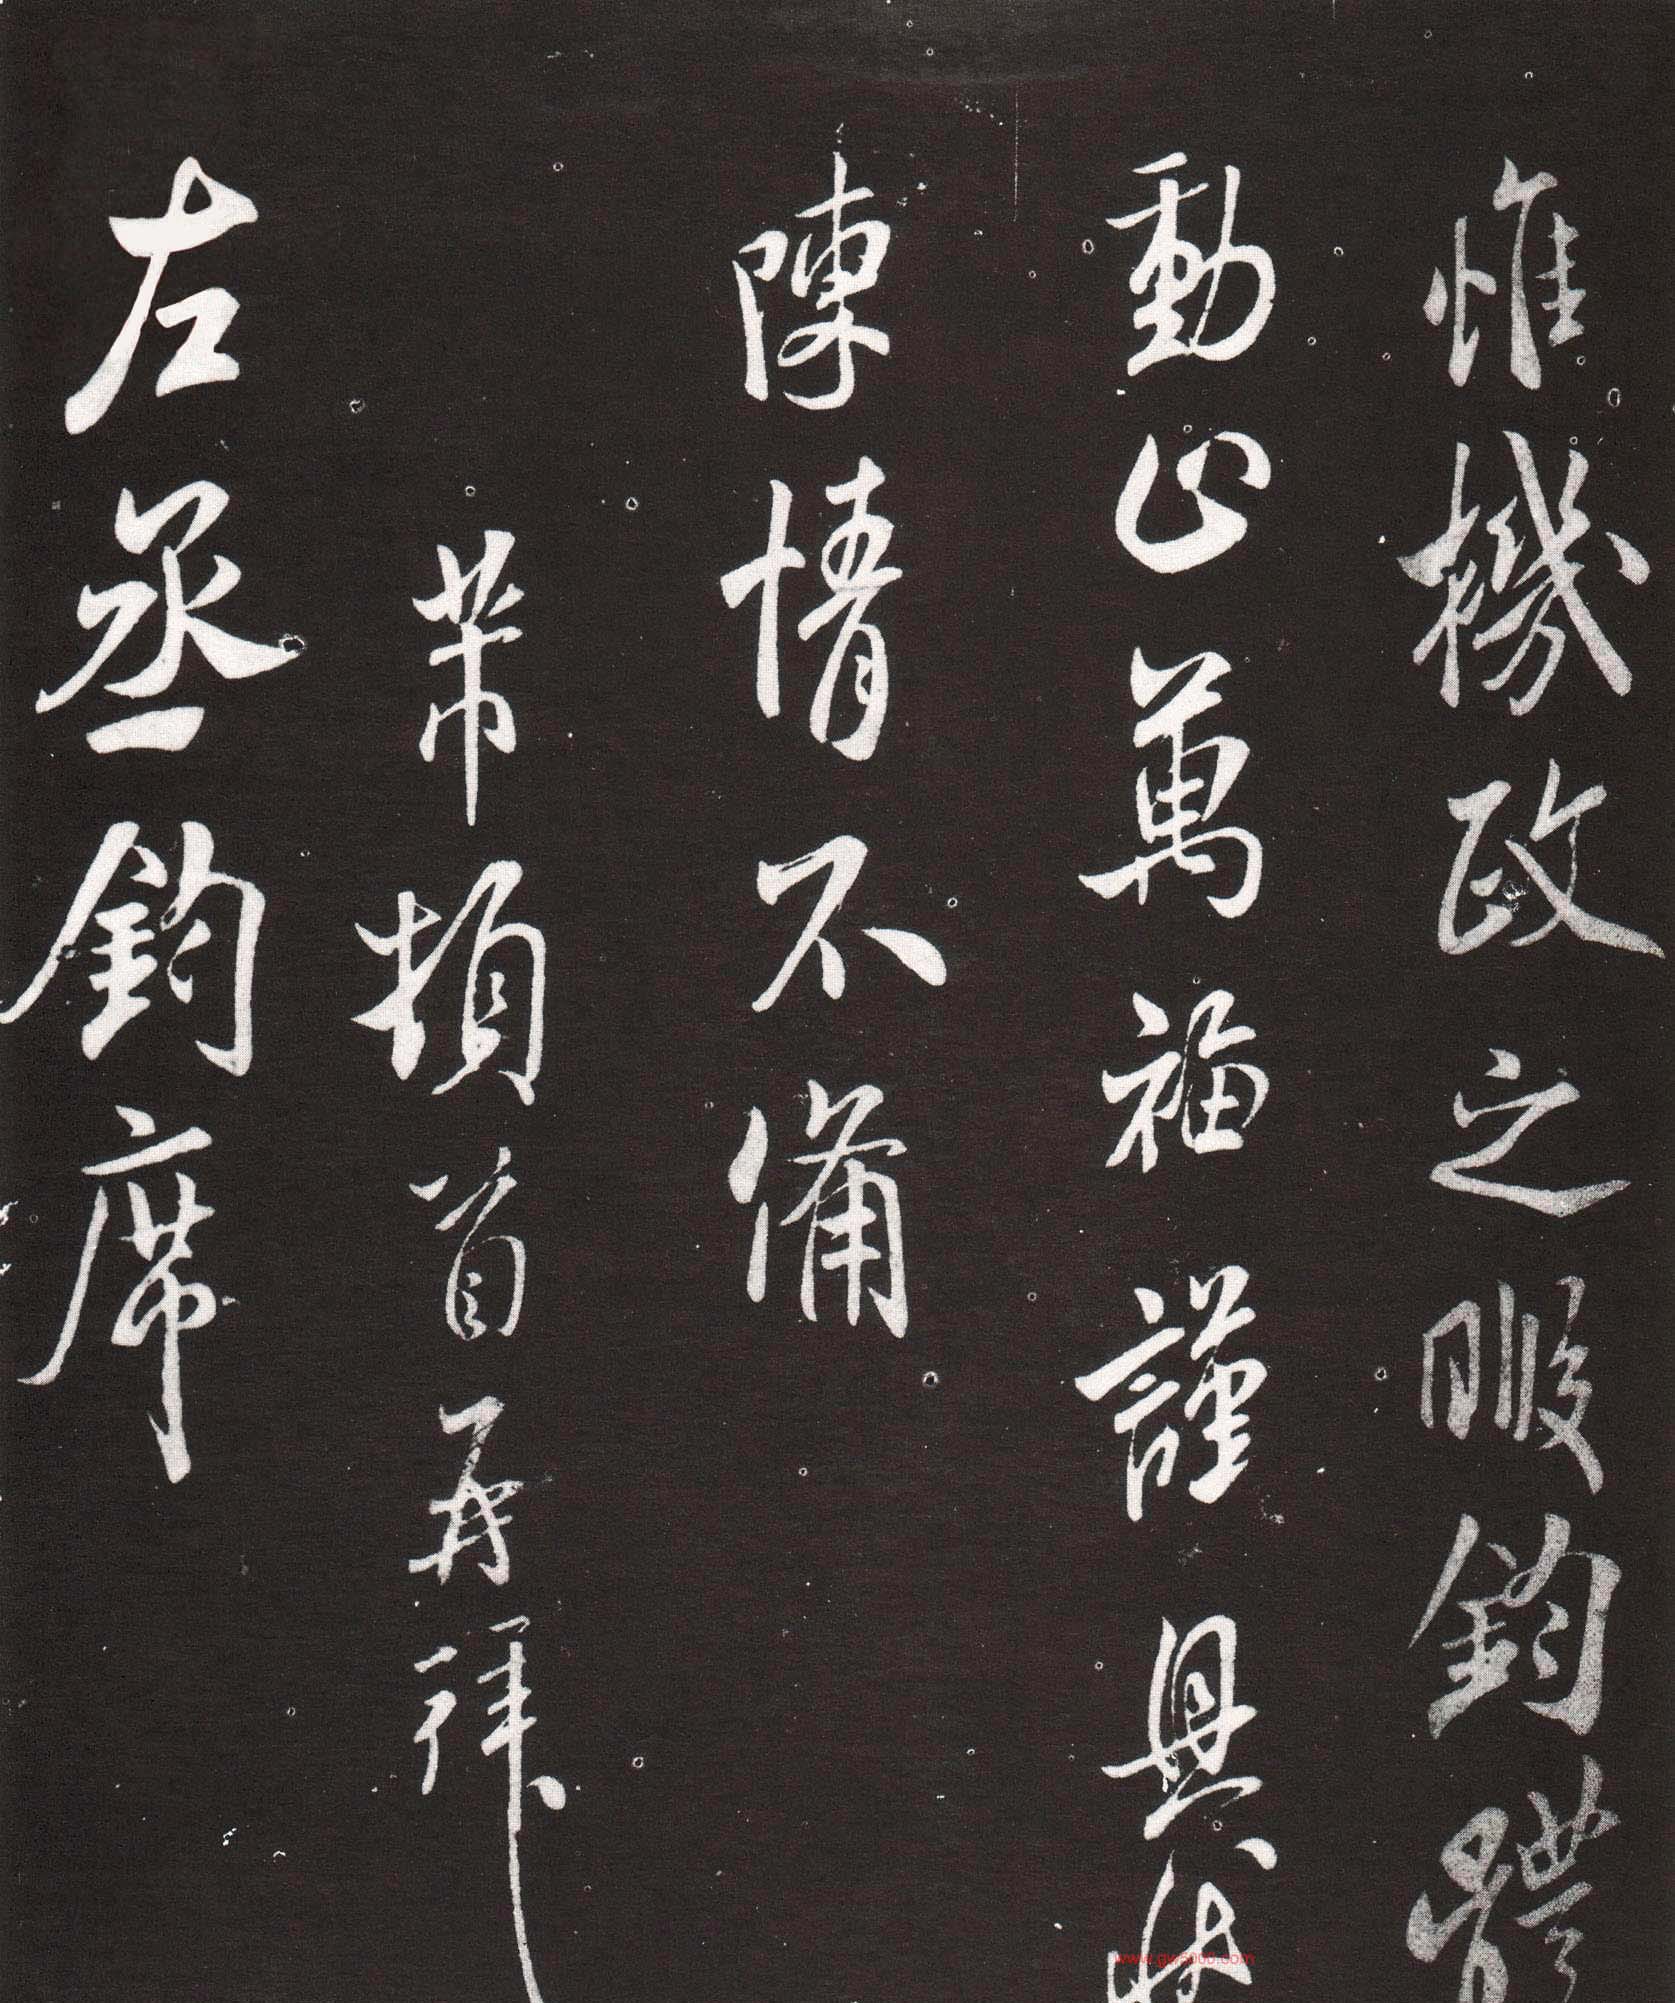 惟機政之暇鈞體
動止萬福謹具狀
陳情不備
芾頓首再拜
左丞鈞席
www.gw5000.com